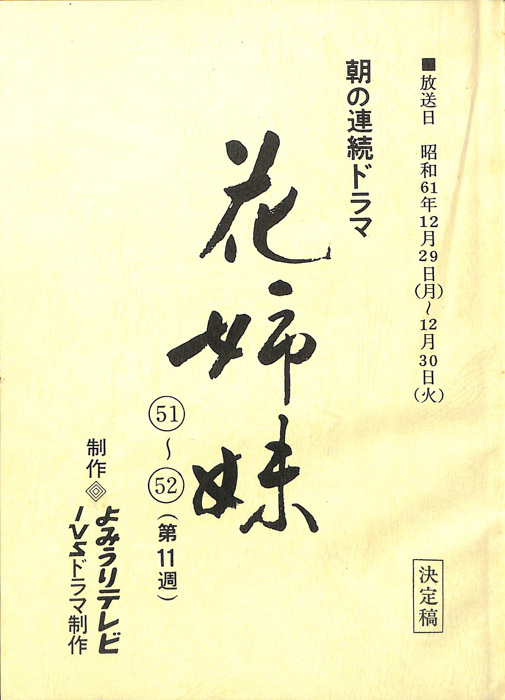 ■放送日　昭和61年12月29日(月)～12月30日(火)
決定稿
朝の連続ドラマ
花姉妹
51～52(第11週)
制作 よみうりテレビ
IVSドラマ制作